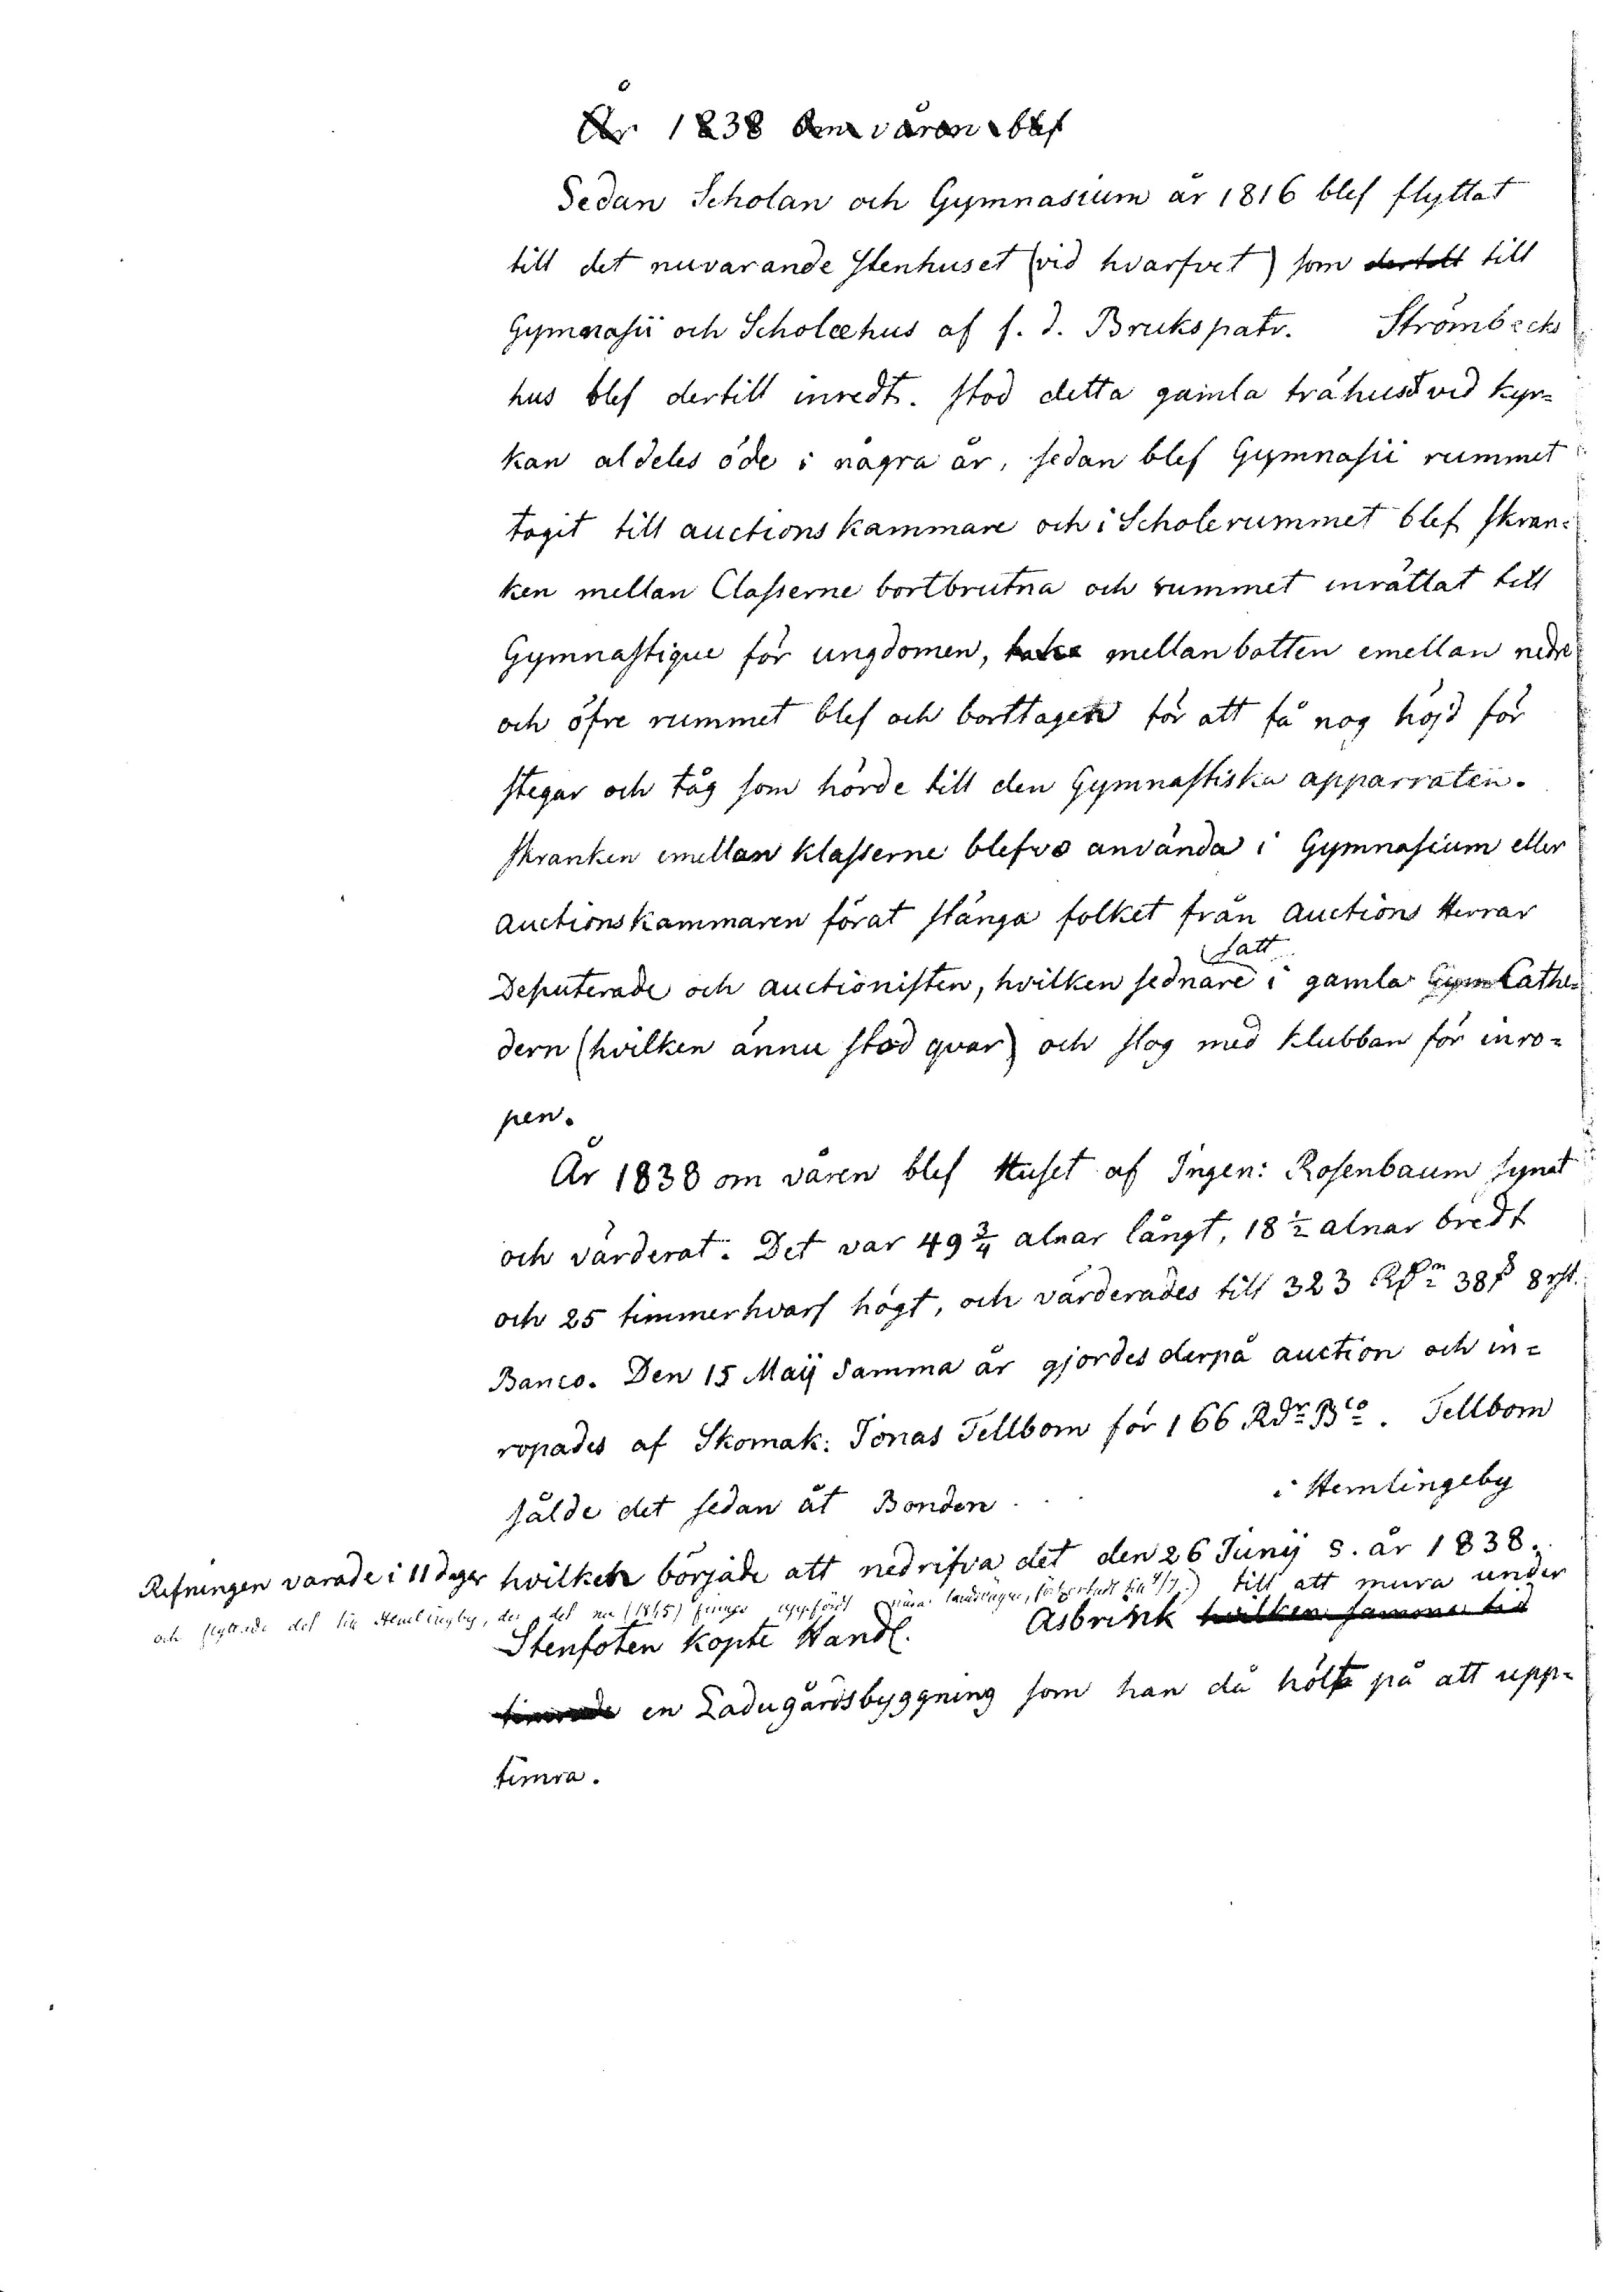 År 1838 om våren blef
Sedan Scholan och Gymnasium år 1816 blef flyttat
till det nuvarande Stenhuset (vid hvarfvet) som dertill till
Gymnasii och Scholæhus af f. d. Brukspatr. Strömbecks
hus blef dertill inredt. stod detta gamla trähuset vid kyr=
kan aldeles öde i några år, sedan blef Gymnasii rummet
tagit till auctionskammare och i Scholerummet blef skran=
ken mellan Classerne bortbrutna och rummet inrättat till
Gymnastique för ungdomen, mellanbotten emellan nedre
och öfre rummet blef och borttagen för att få nog höjd för
stegar och tåg som hörde till den Gymnastiska apparraten.
skranken emellan klasserne blefvo använda i Gymnasium eller
Auctionskammaren förat stänga folket från Auctions Herrar
Deputerade och auctionisten, hvilken sednare satt i gamla Gym Cathe=
dern (hvilken ännu stod qvar) och slog med klubban för inro=
pen.
År 1838 om våren blef Huset af Ingen: Rosenbaum synat
och värderat. Det var 49 3/4 alnar långt, 18 1/2 alnar bredt
och 25 timmerhvarf högt, och värderades till 323 38 8 rst.
Banco. Den 15 Maij samma år gjordes derpå auction och in=
ropades af Skomak: Jonas Tellbom för 166 Rdr Bco. Tellbom
sålde det sedan åt Bonden . . . i Hemlingeby
Refningen varade i 11 dagar
och flyttade det till Hemlingby, der det nu (1845) finnes uppfördt nära landsvägen,
hvilken började att nedrifva det den 26 Junij s. år 1838.
Stenfoten köpte Handl. Asbrink till att mura under hvilken samma tid
timrade en Ladugårdsbyggning som han då hölt på att upp=
timra.